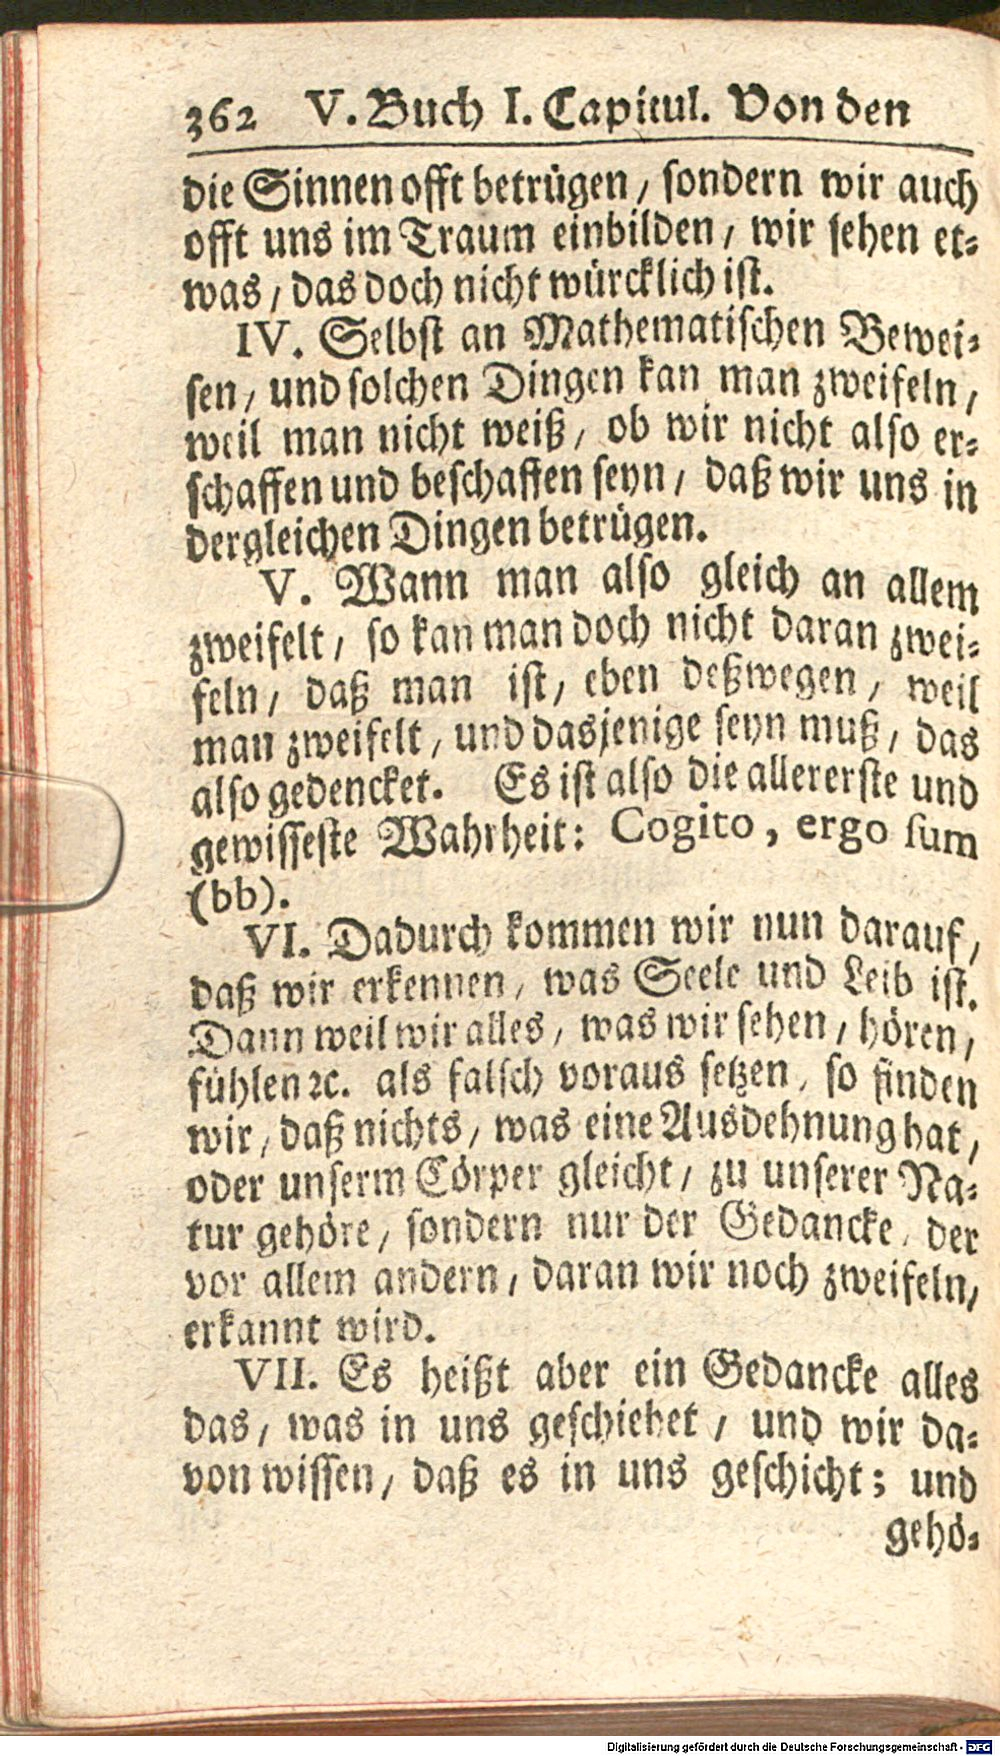 362 V. Buch I. Capitul. Von den
die Sinnen offt betrügen / sondern wir auch
offt uns im Traum einbilden / wir sehen et-
was / das doch nicht würcklich ist.
IV. Selbst an Mathematischen Bewei-
sen / und solchen Dingen kan man zweifeln /
weil man nicht weiß / ob wir nicht also er-
schaffen und beschaffen seyn / daß wir uns in
dergleichen Dingen betrügen.
V. Wann man also gleich an allem
zweifelt / so kan man doch nicht daran zwei-
feln / daß man ist / eben deßwegen / weil
man zweifelt / und dasjenige seyn muß / das
also gedencket. Es ist also die allererste und
gewisseste Wahrheit: Cogito, ergo sum
(bb).
VI. Dadurch kommen wir nun darauf /
daß wir erkennen / was Seele und Leib ist.
Dann weil wir alles / was wir sehen / hören /
fühlen ꝛc. als falsch voraus setzen / so finden
wir / daß nichts / was eine Ausdehnung hat /
oder unserm Cörper gleicht / zu unserer Na-
tur gehöre / sondern nur der Gedancke / der
vor allem andern / daran wir noch zweifeln /
erkannt wird.
VII. Es heißt aber ein Gedancke alles
das / was in uns geschiehet / und wir da-
von wissen / daß es in uns geschicht; und
gehö-
Digitalisierung gefördert durch die Deutsche Forschungsgemeinschaft - DFG